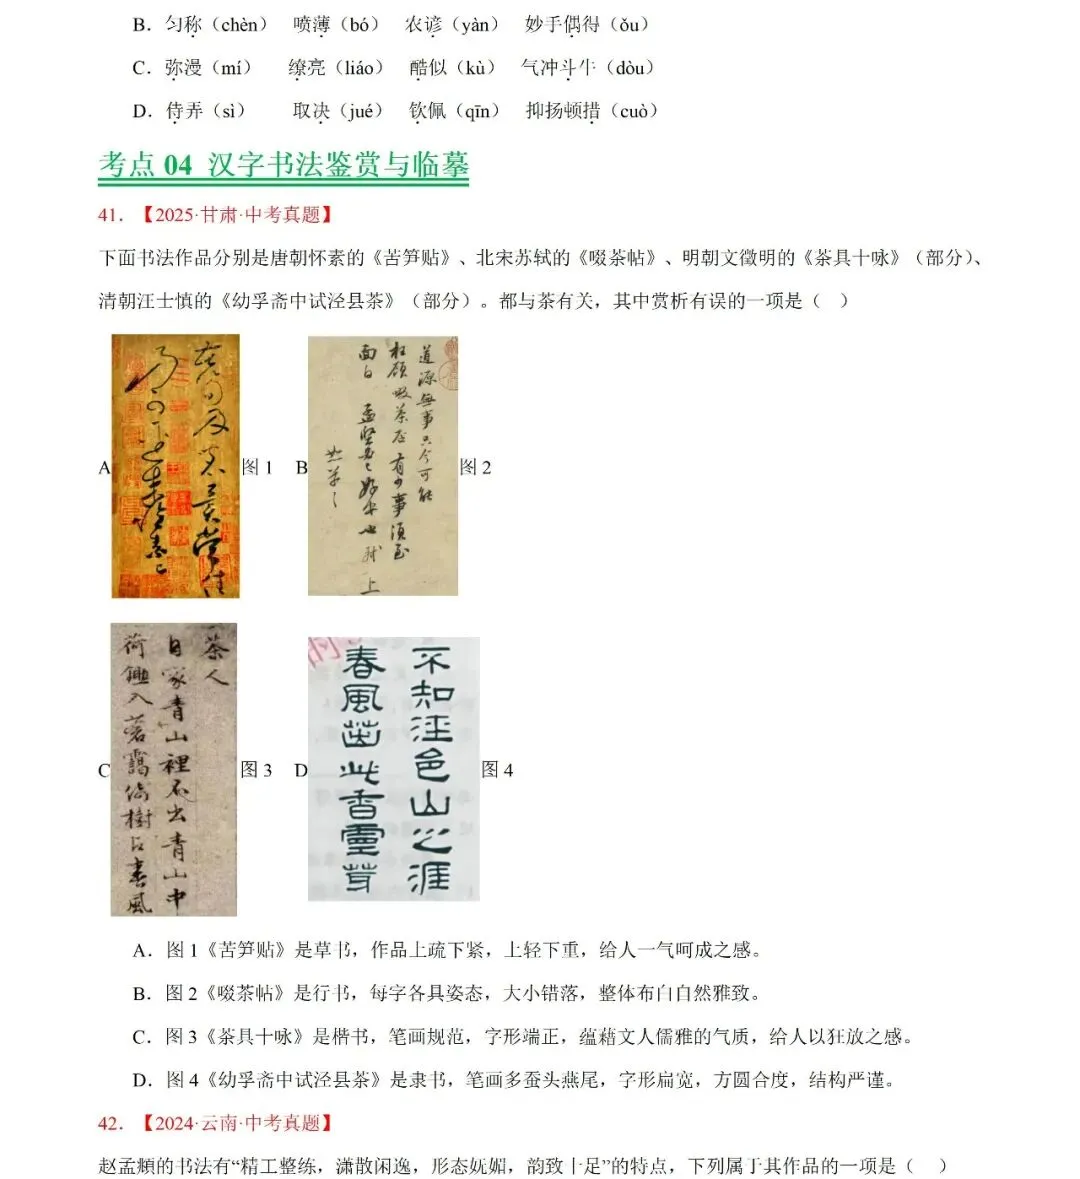 B．匀称（chèn） 喷薄（bó） 农谚（yàn） 妙手偶得（ǒu）
C．弥漫（mí） 缭亮（liáo） 酷似（kù） 气冲斗牛（dòu）
D．侍弄（sì） 取决（jué） 钦佩（qīn） 抑扬顿措（cuò）
考点 04 汉字书法鉴赏与临摹
41．【2025·甘肃·中考真题】
下面书法作品分别是唐朝怀素的《苦笋贴》、北宋苏轼的《啜茶帖》、明朝文徵明的《茶具十咏》（部分）、
清朝汪士慎的《幼孚斋中试泾县茶》（部分）。都与茶有关，其中赏析有误的一项是（ ）
苦笋及茗异常佳
乃可迳来怀素上
A
图 1
道源無事只今可能
枉顾啜茶否有少事须至
面白 孟坚必已好安也 轼上
恕草草
B
图 2
茶人
自家青山裡不出青山中
荷鋤入蒼靄倚樹占春風
C
图 3
不知泾邑山之涯
春風茁此香靈芽
D
图 4
A．图 1《苦笋贴》是草书，作品上疏下紧，上轻下重，给人一气呵成之感。
B．图 2《啜茶帖》是行书，每字各具姿态，大小错落，整体布白自然雅致。
C．图 3《茶具十咏》是楷书，笔画规范，字形端正，蕴藉文人儒雅的气质，给人以狂放之感。
D．图 4《幼孚斋中试泾县茶》是隶书，笔画多蚕头燕尾，字形扁宽，方圆合度，结构严谨。
42．【2024·云南·中考真题】
赵孟頫的书法有“精工整练，潇散闲逸，形态妩媚，韵致十足”的特点，下列属于其作品的一项是（ ）